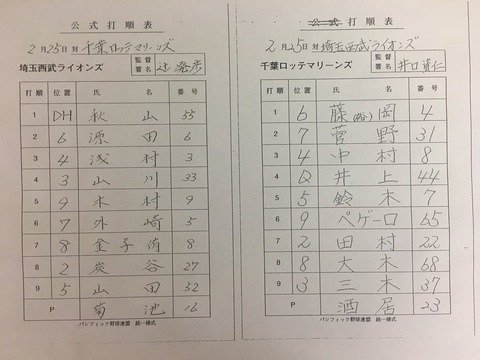 公式打順表
2月25日 対 千葉ロッテマリーンズ
埼玉西武ライオンズ 監督署名 辻 発彦
打順 位置 氏名 番号
1 DH 秋山 55
2 6 源田 6
3 4 浅村 3
4 3 山川 33
5 9 木村 9
6 7 外崎 5
7 8 金子侑 8
8 2 炭谷 27
9 5 山田 52
P 菊池 16
パシフィック野球連盟 統一様式
公式打順表
2月25日 対 埼玉西武ライオンズ
千葉ロッテマリーンズ 監督署名 井口資仁
打順 位置 氏名 番号
1 6 藤岡(裕) 4
2 7 菅野 31
3 4 中村 8
4 D 井上 44
5 5 鈴木 7
6 9 ペゲーロ 65
7 2 田村 22
8 8 大木 68
9 3 三木 37
P 酒居 23
パシフィック野球連盟 統一様式